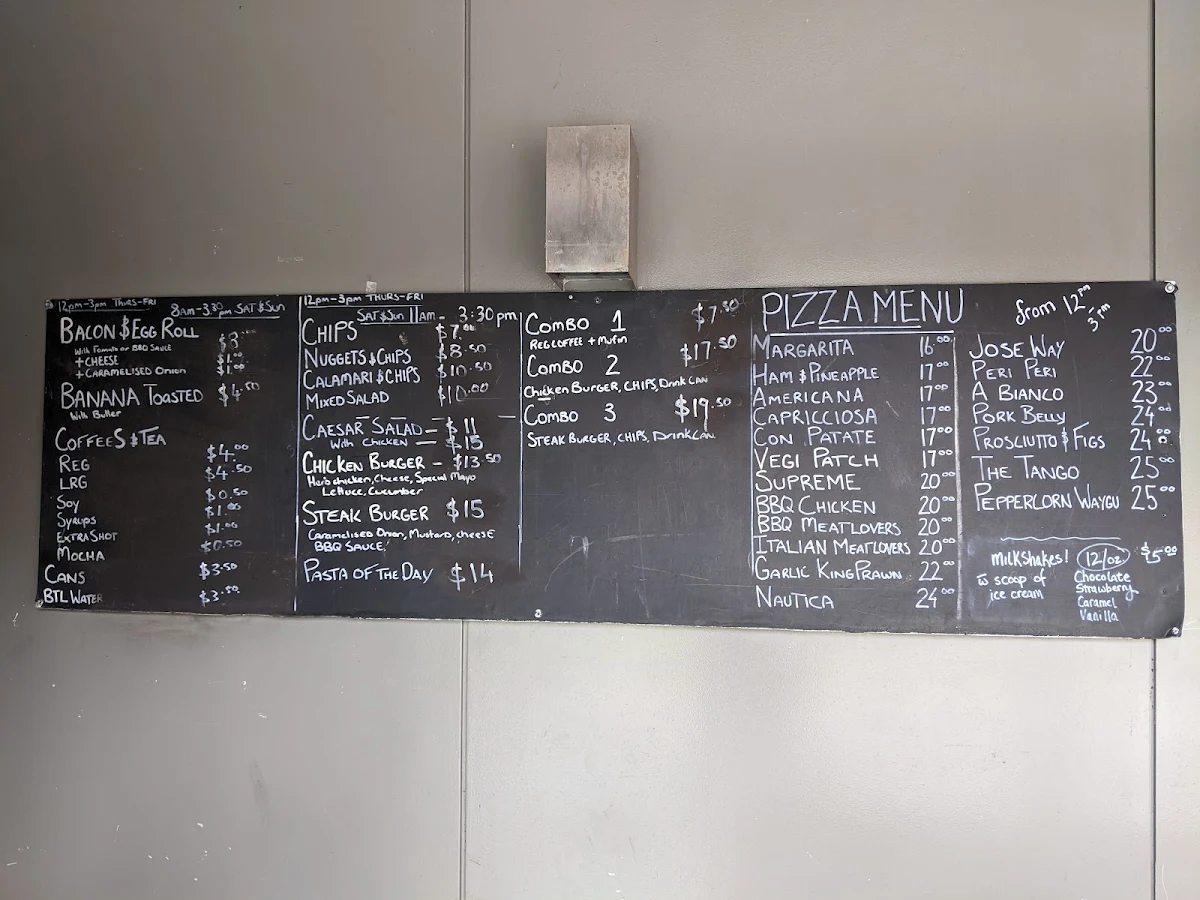 12pm-3pm THURS-FRI
8am-3.30pm SAT & SUN
BACON & EGG ROLL
With Tomato or BBQ SAUCE
+ CHEESE $1.00
+ CARAMELISED ONION $1.00
BANANA TOASTED $4.50
With Butter
COFFEES & TEA
REG $4.00
LRG $4.50
SOY $0.50
SYRUPS $1.00
EXTRA SHOT $1.00
MOCHA $0.50
CANS $3.50
BTL WATER $3.50
12pm-3pm THURS-FRI
SAT & SUN 11AM - 3:30pm
CHIPS $7.00
NUGGETS & CHIPS $8.50
CALAMARI & CHIPS $10.50
MIXED SALAD $10.00
CAESAR SALAD - $11
With CHICKEN - $15
CHICKEN BURGER - $13.50
Herb chicken, Cheese, Special Mayo
Lettuce, Cucumber
STEAK BURGER $15
Caramelised Onion, Mustard, cheese
BBQ SAUCE
PASTA OF THE DAY $14
COMBO 1 $7.50
REG COFFEE + Mufin
COMBO 2 $17.50
Chicken BURGER, CHIPS, Drink CAN
COMBO 3 $19.50
STEAK BURGER, CHIPS, Drink CAN.
PIZZA MENU
from 12pm
3pm
MARGARITA 16.00
HAM & PINEAPPLE 17.00
AMERICANA 17.00
CAPRICCIOSA 17.00
CON PATATE 17.00
VEGI PATCH 17.00
SUPREME 20.00
BBQ CHICKEN 20.00
BBQ MEATLOVERS 20.00
ITALIAN MEATLOVERS 20.00
GARLIC KING PRAWN 22.00
NAUTICA 24.00
JOSE WAY 20.00
PERI PERI 22.00
A BIANCO 23.00
PORK BELLY 24.00
PROSCIUTTO & FIGS 24.00
THE TANGO 25.00
PEPPERCORN WAYGU 25.00
milkshakes! 12/oz. $5.00
w scoop of
ice cream
Chocolate
Strawberry
Caramel
Vanilla